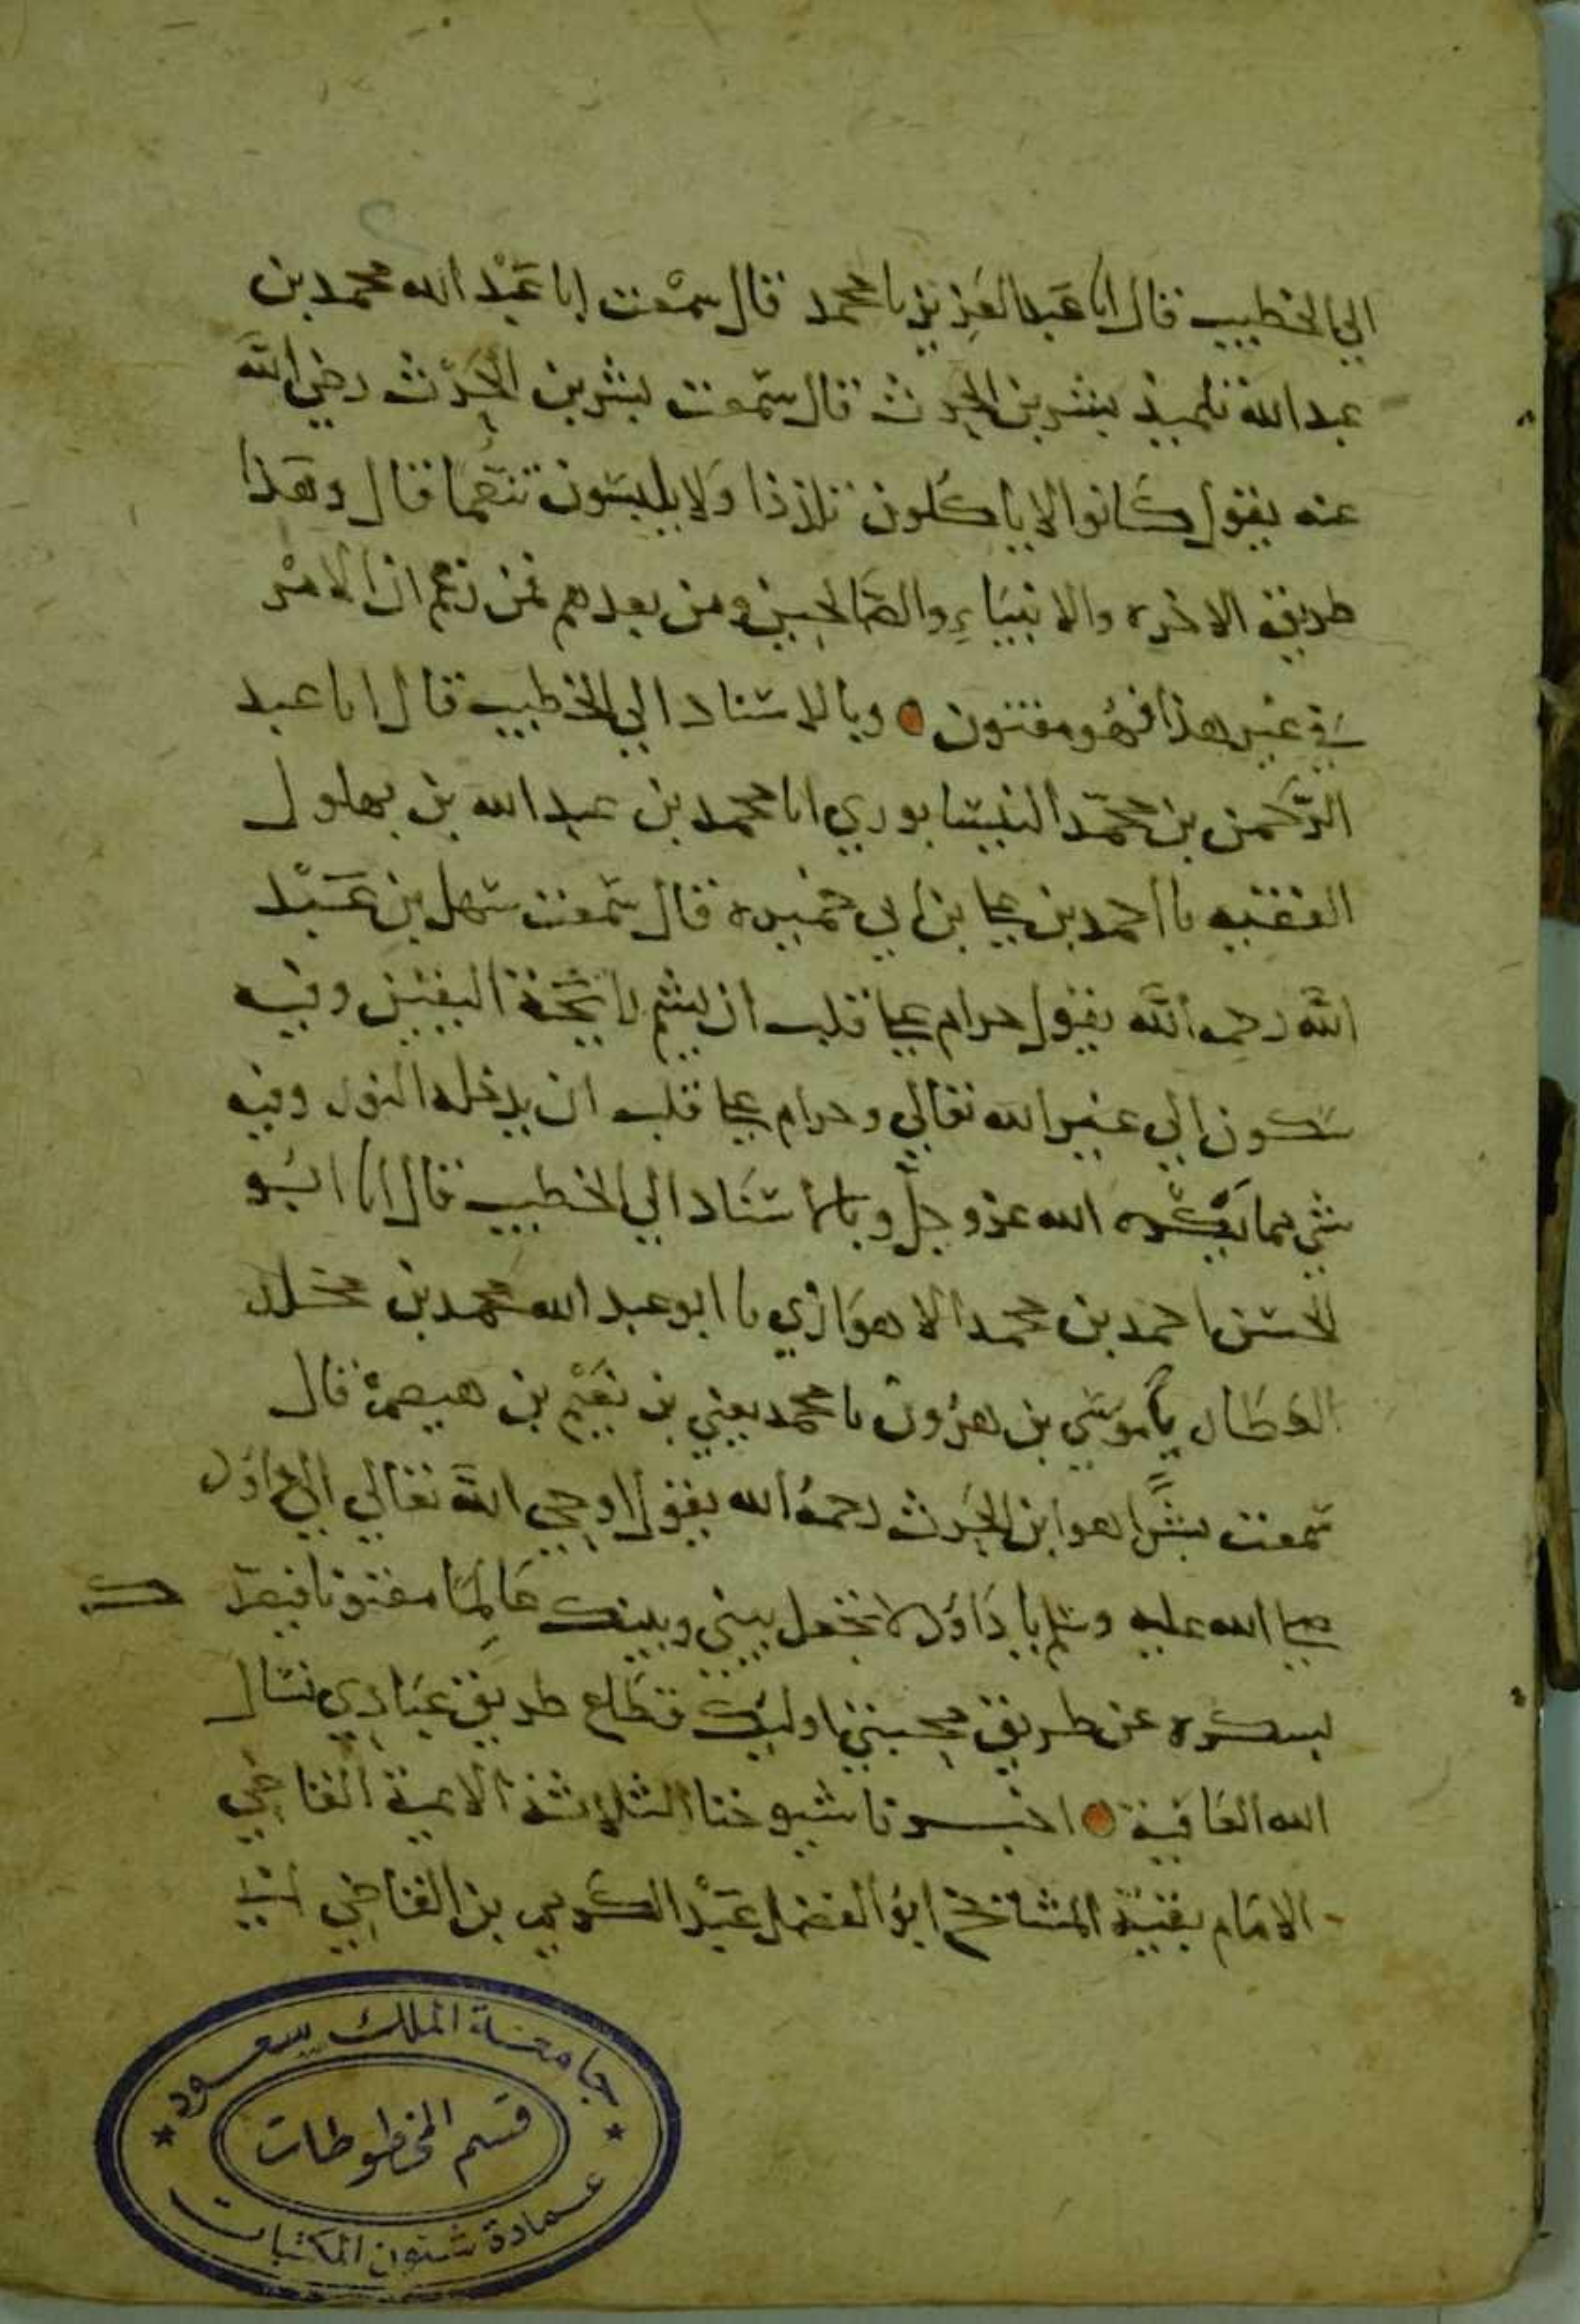 الي الخطيب قال انا عبد العزيز نا محمد قال سمعت ابا عَبْد الله محمد بن
عبد الله تلميذ بشر بن الحرث قال سمعت بشر بن الحرث رضي الله
عنه يقول كانوا لا ياكلون تلذذا ولا يلبسون تنعما قال وهذا
طريق الاخره والانبياءِ والصالحين ومن بعدهم فمن زعم ان الامر
في غير هذا فهو مفتون وبالاسناد الي الخطيب قال انا عبد
الرحمن بن محمّد النيسابوري انا محمد بن عبد الله بن بهلول
الفقيه نا احمد بن علي بن ابي خميره قال سمعت سهل بن عَبْد
الله رحمه الله يقول حرام علي قلب ان يشم رايحة اليقين وفيه
سكون الي غير الله تعالي وحرام علي قلب ان يدخله النور وفيه
شي مما يكره الله عز وجلّ وبالاسناد الي الخطيب قال انا ابو
الحسن احمد بن محمد الاهوازي نا ابو عبد الله محمد بن مخلد
العطار نا موسي بن هرون نا محمد يعني بن نعَيْم بن هيصم قال
سمعت بشرًا هو ابن الحرث رحمه الله يقول اوحي الله تعالي الي داود
صلي الله عليه وسلم يا داوُد لا تجعل بيني وبينك عَالِمًا مفتونا فيصدك
بسكره عن طريق محبتي اوليك قطاع طريق عبادي نسال
الله العافية اخبرنا شيوخنا الثلاثة الايمة القاضي
الامام بقية المشايخ ابو الفضل عَبْد الكريم بن القاضي
جامعة الملك سعود
قسم المخطوطات
عمادة شئون المكتبات